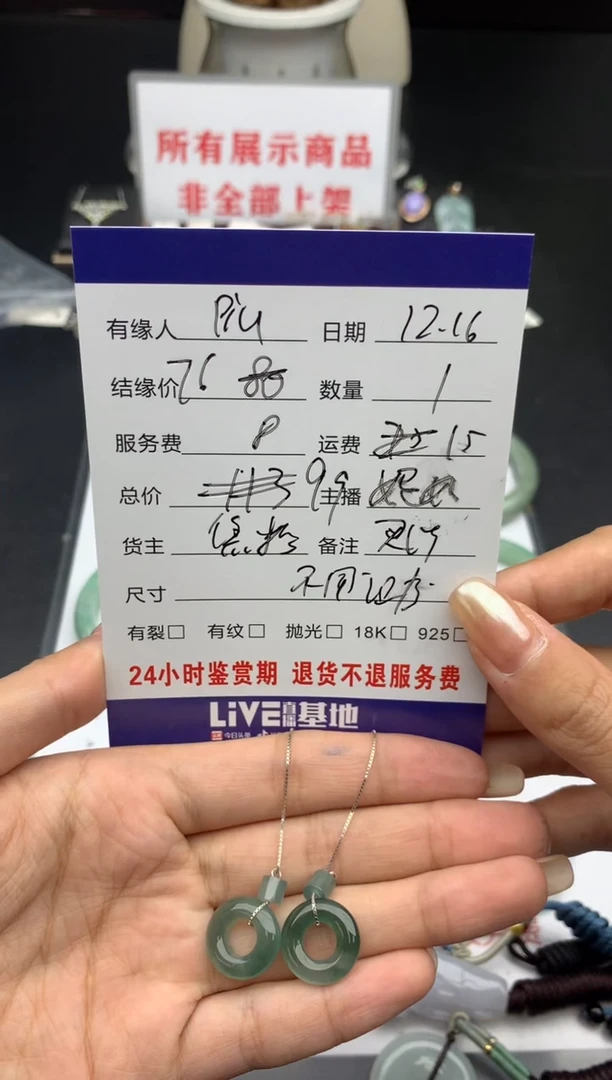 所有展示商品
非全部上架
有缘人 Piu 日期 12-16
结缘价 76 80 数量 1
服务费 8 运费 15
总价 99 主播
货主 备注
尺寸 不同
有裂□ 有纹□ 抛光□ 18K□ 925□
24小时鉴赏期 退货不退服务费
LiVE直播基地
今日头条